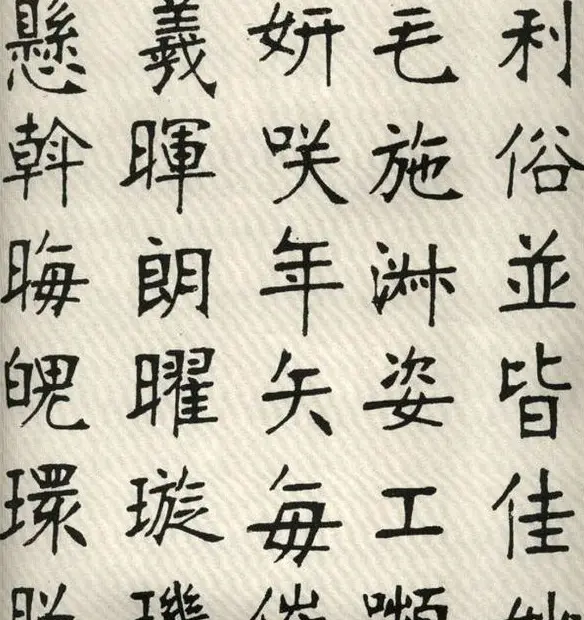 利俗並皆佳妙
毛施淑姿工嚬
妍咲年矢每催
羲暉朗曜璇璣
懸斡晦魄環